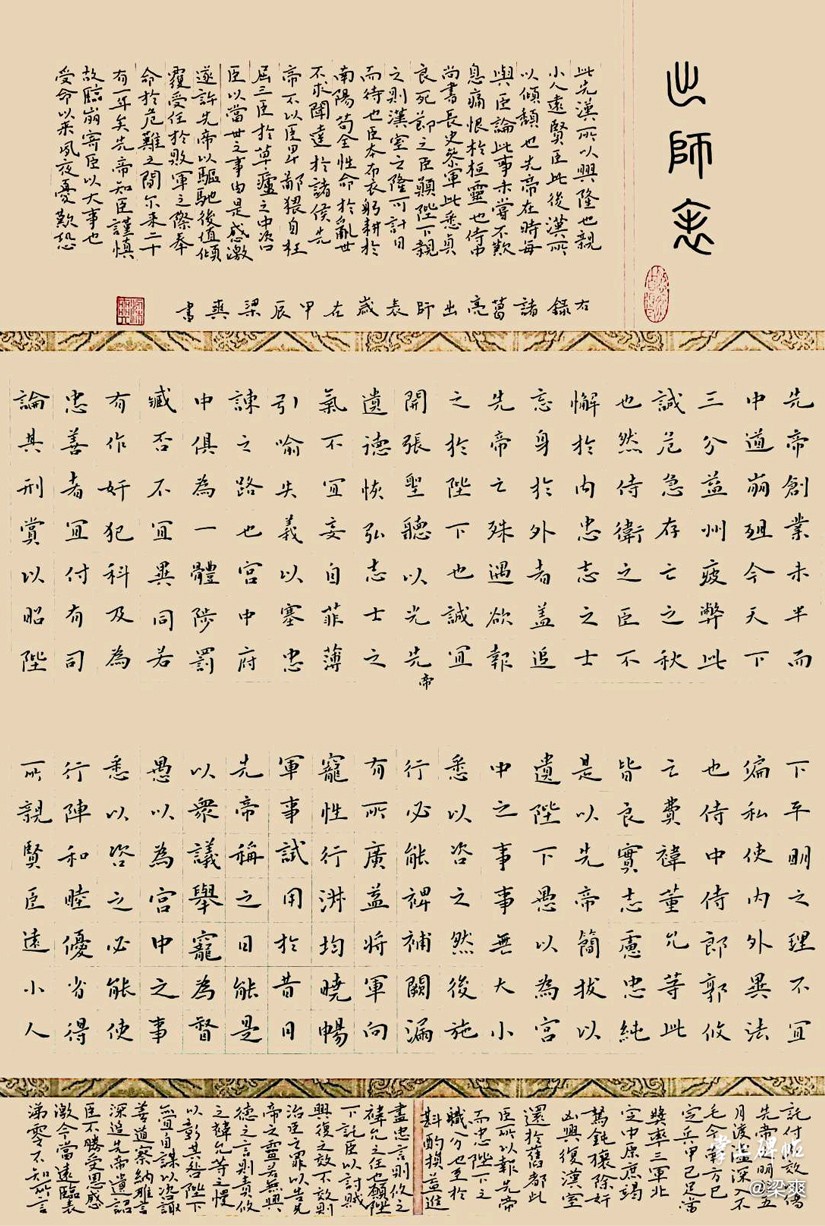 出師表
此先漢所以興隆也親
小人遠賢臣此後漢所
以傾頹也先帝在時每
與臣論此事未嘗不歎
息痛恨於桓靈也侍中
尚書長史參軍此悉貞
良死節之臣願陛下親
之則漢室之隆可計日
而待也臣本布衣躬耕於
南陽苟全性命於亂世
不求聞達於諸侯先
帝不以臣卑鄙猥自枉
屈三臣於草廬之中咨
臣以當世之事由是感激
遂許先帝以驅馳後值傾
覆受任於敗軍之際奉
命於危難之間尔来二十
有一年矣先帝知臣謹慎
故臨崩寄臣以大事也
受命以来夙夜憂歎恐
右錄諸葛亮出師表歲在甲辰梁爽書
先帝創業未半而
中道崩殂今天下
三分益州疲弊此
誠危急存亡之秋
也然侍衛之臣不
懈於内忠志之士
忘身於外者蓋追
先帝之殊遇欲報
之於陛下也誠宜
開張聖聽以光先帝
遺德恢弘志士之
氣不宜妄自菲薄
引喻失義以塞忠
諫之路也宮中府
中俱為一體陟罰
臧否不宜異同若
有作奸犯科及為
忠善者宜付有司
論其刑賞以昭陛
下平明之理不宜
偏私使内外異法
也侍中侍郎郭攸
之費禕董允等此
皆良實志慮忠純
是以先帝簡拔以
遺陛下愚以為宮
中之事事無大小
悉以咨之然後施
行必能裨補闕漏
有所廣益將軍向
寵性行淑均曉暢
軍事試用於昔日
先帝稱之曰能是
以衆議舉寵為督
愚以為宮中之事
悉以咨之必能使
行陣和睦優劣得
所親賢臣遠小人
託付不效以傷
先帝之明故五
月渡瀘深入不
毛今南方已
定兵甲已足當
獎率三軍北
定中原庶竭
駑鈍攘除奸
凶興復漢室
還於舊都此
臣所以報先帝
而忠陛下之
職分也至於
斟酌損益進
盡忠言則攸之
禕允之任也願陛
下託臣以討賊
興復之效不效則
治臣之罪以告先
帝之靈若無興
德之言則責攸
之禕允等之慢
以彰其咎陛下
亦宜自謀以咨諏
善道察納雅言
深追先帝遺詔
臣不勝受恩感
激今當遠離臨表
涕零不知所言
掌上碑帖
@梁爽